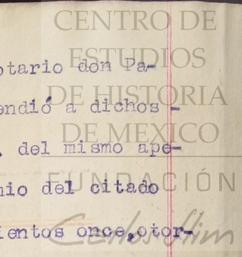 CENTRO DE
ESTUDIOS
DE HISTORIA
DE MEXICO
FUNDACIÓN
Carlos Slim
otario don Pa-
endió a dichos -
. del mismo ape-
nio del citado
ientos once,otor-